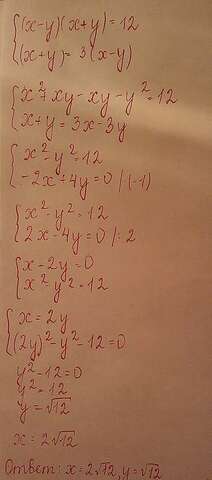 (x-y)(x+y)=12
(x+y)=3(x-y)
x²+xy-xy-y²=12
x+y=3x-3y
x²-y²=12
-2x+4y=0 |·(-1)
x²-y²=12
2x-4y=0 |:2
x-2y=0
x²-y²=12
x=2y
(2y)²-y²-12=0
y²-12=0
y²=12
y=√12
x=2√12
Ответ: x=2√12, y=√12